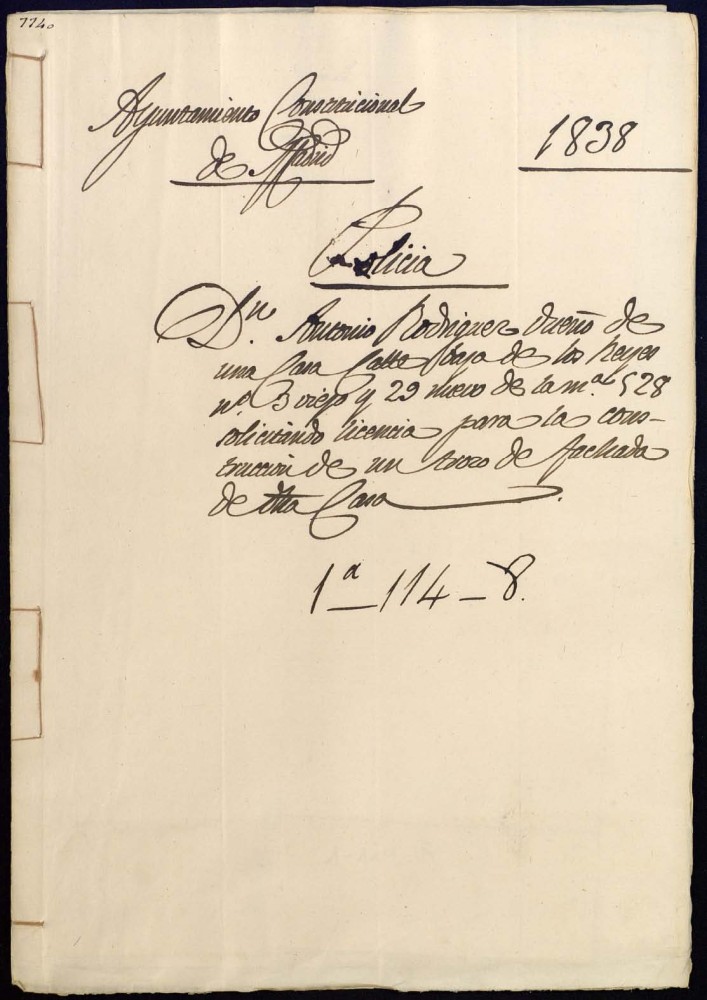 7740
Ayuntamiento Constitucional
de Madrid
1838
Policia
Dn. Antonio Rodriguez dueño de
una Casa Calle baja de los Reyes
nº 3 viejo y 29 nuevo de la m.ª 528
solicitando licencia para la cons-
truccion de un trozo de fachada
de dha Casa.
1ª - 114 - 8.